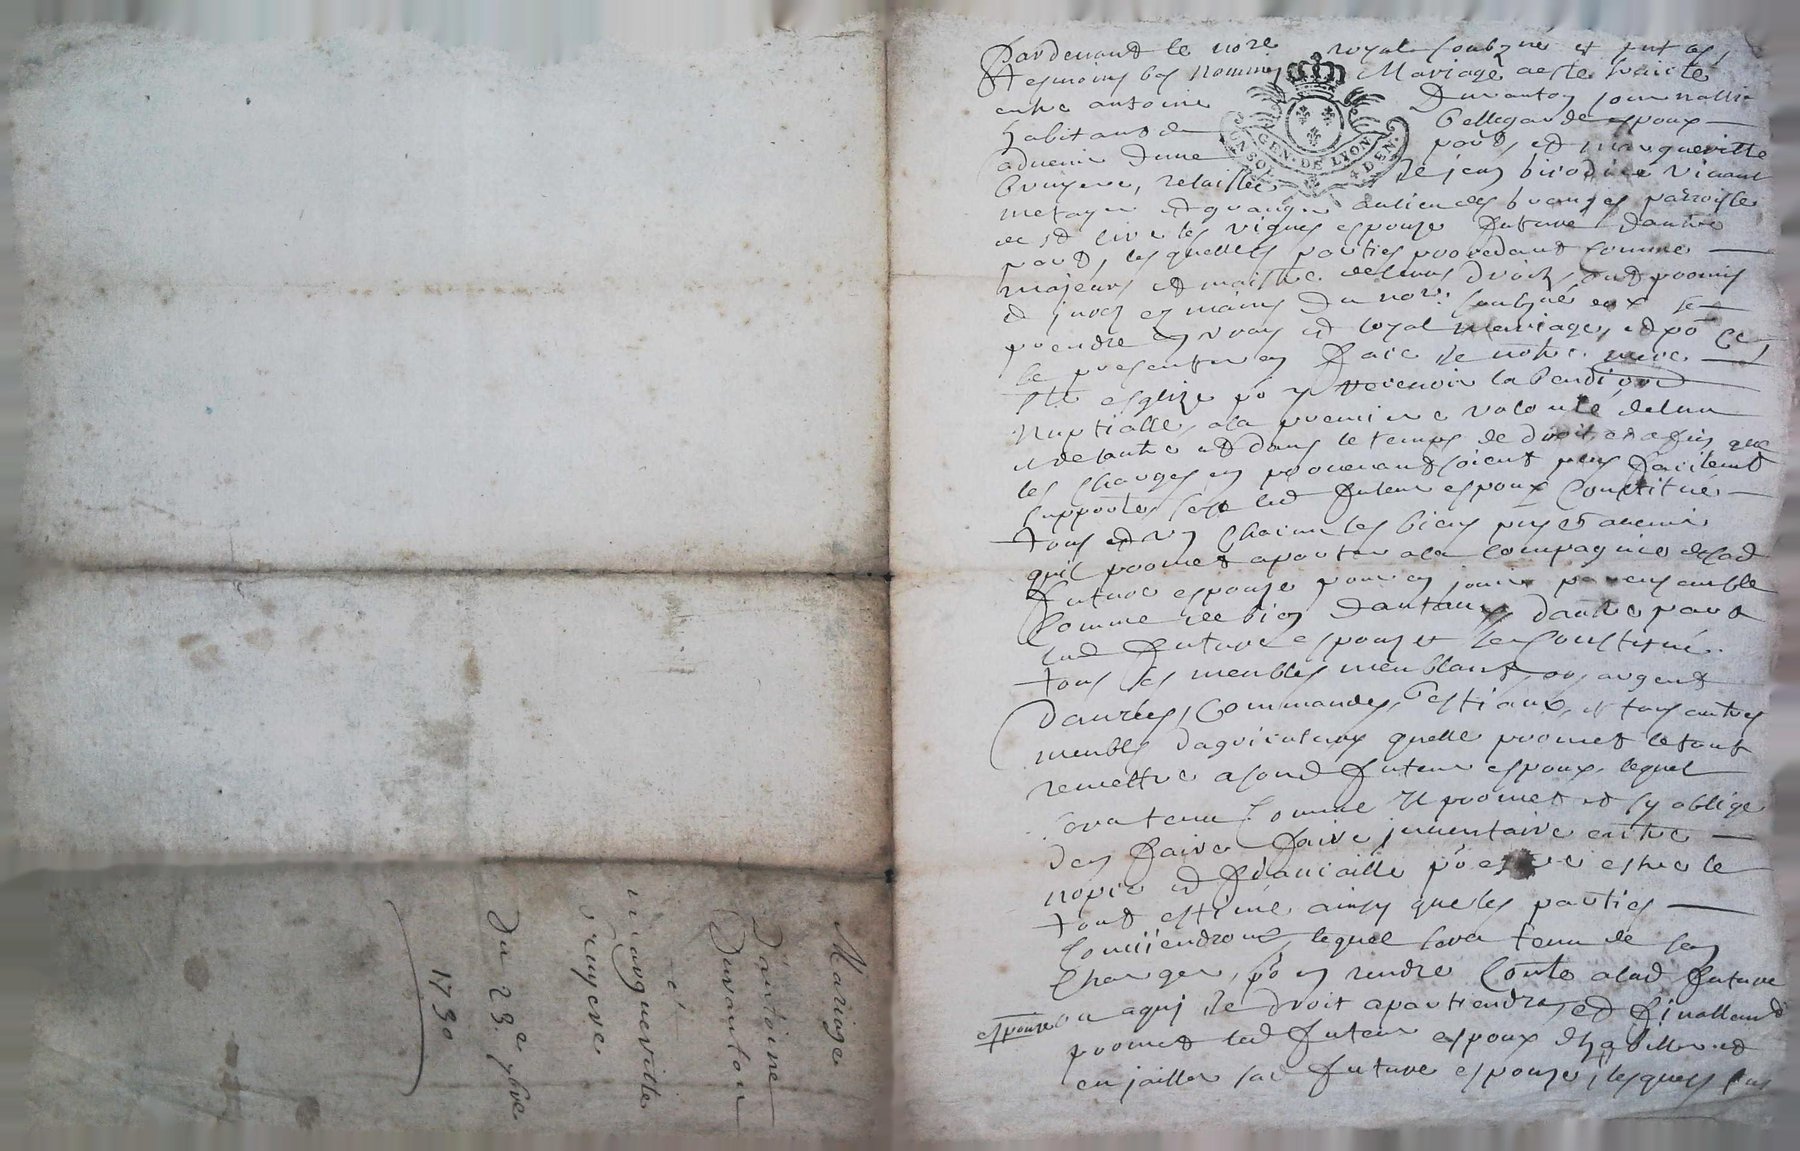 Mariage
dantoine
Duranton
et
margueritte
bruyere
Du 23e xbre
1730
Pardevant le nore royal soubzné et entes
tesmoins bas nommes Mariage a este traicte
entre antoine Duranton journallie
habitant de bellegarde espoux
advenir dune part, et margueritte
bruyere, relaissee de jean vivant
metayer et granger au lieu des paroisse
de st les vignes espouze future dautre
part, lesquelles parties procedant comme
majeurs et maistre de leurs droits, ont promis
et juré es mains du nore soubzné eux se
prendre en vray et loyal mariage, et po ce
se presenter en face de nostre mere
ste esglize po y recevoir la benediction
nuptialle, a la premiere volonté de lun
et de lautre et dans le temps de droit, et afin que
les charges en provenant soient plus facilemt
supportés sest led futeur espoux constitué
tous et un chacun ses biens pnts et avenir
quil promet aporter a la compagnie de lad
future espouze pour en jouir par ensemble
comme de bien dautant, dautre part
lad future espouze se constitué
tous ses meubles meublant, en argent
danrées, commandes, bestiaux, et tous autres
meubles dagriculture quelle promet le tout
remettre a sond futeur espoux lequel
sera tenu comme il promet et sy oblige
den faire faire inventaire entre
nopce et fiancaille po estre le
tout estimé ainsy que les parties
conviendront, lequel sera tenu de sen
charger, po en rendre conte a lad future
espouze ou a qui de droit apartiendra, et finallemt
promet led futeur espoux dhabiller et
enjailler sad future espouze, lesquels
GEN. DE LYON
4 DEN.